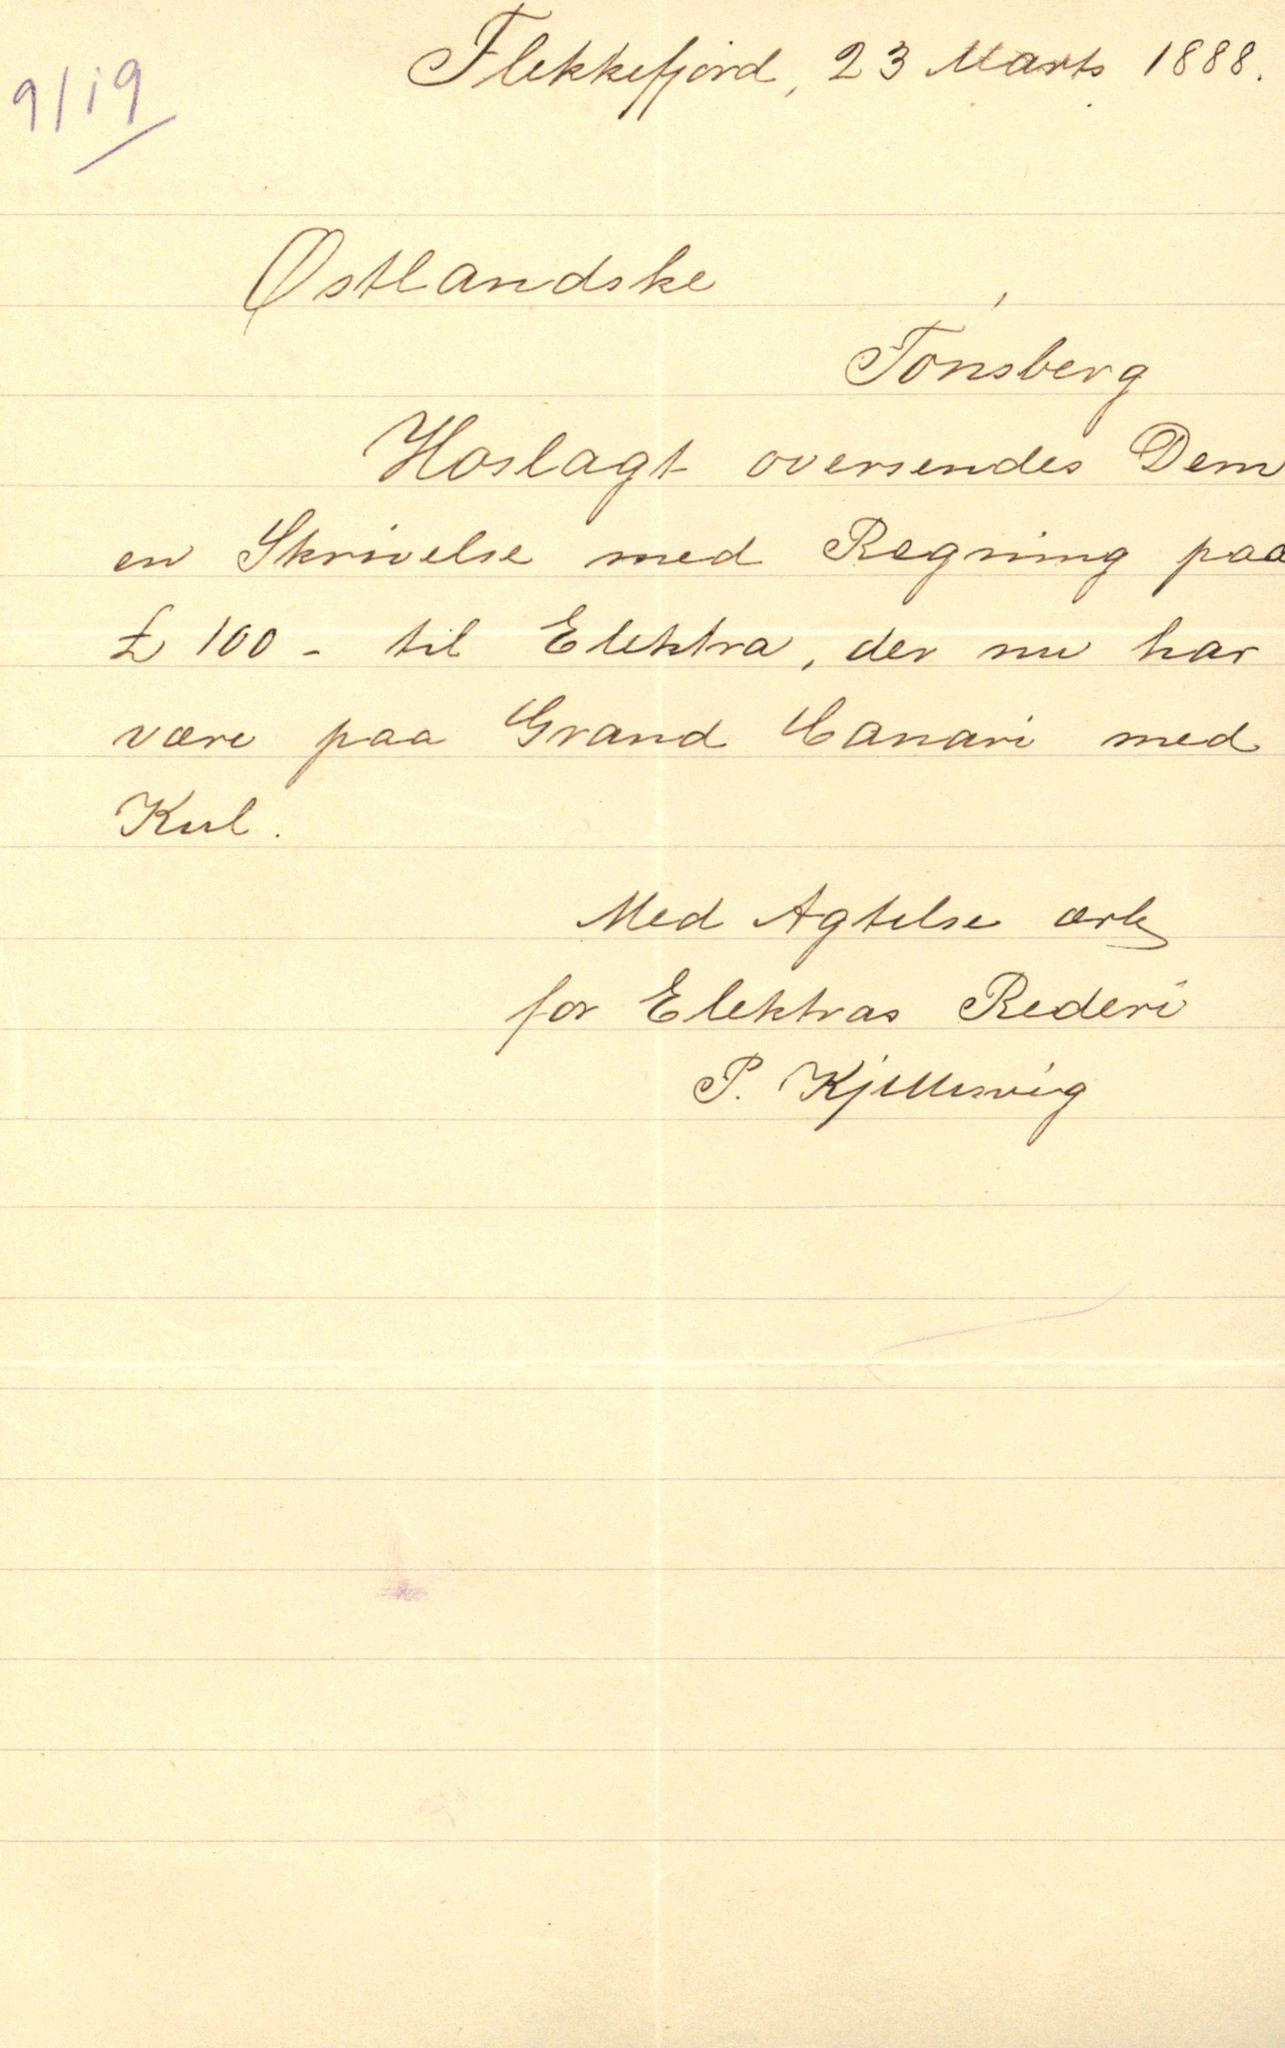 9/19
Flekkefjord, 23 Marts 1888.
Østlandske
Tönsberg
Hoslagt oversendes Dem
en Skrivelse med Regning paa
£ 100 - til Elektra, der nu har
være paa Grand Canari med
Kul.
Med Agtelse ærb
for Elektras Rederi
P. Kjellesvig